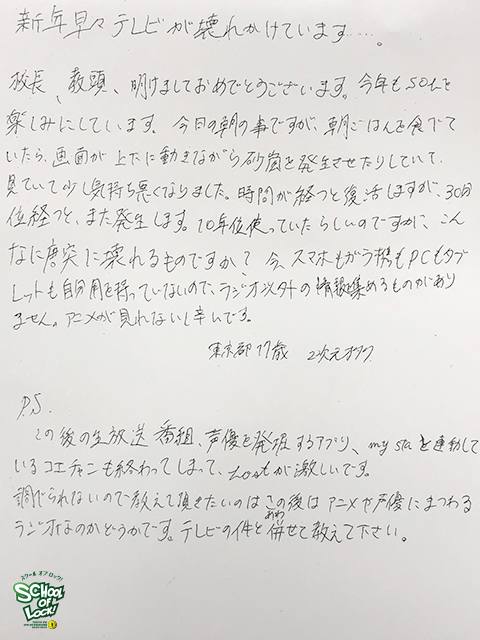 新年早々テレビが壊れかけています……。
校長、教頭、明けましておめでとうございます。今年もSOLを
楽しみにしています。今日の朝の事ですが、朝ごはんを食べて
いたら、画面が上下に動きながら砂嵐を発生させたりしていて、
見ていて少し気持ち悪くなりました。時間が経つと復活しますが、30分
位経つと、また発生します。10年位使っていたらしいのですが、こん
なに唐突に壊れるものですか?今、スマホもガラ携もPCもタブ
レットも自分用を持っていないので、ラジオ以外の情報集めるものがあり
ません。アニメが見れないし辛いです。
東京都 17歳 2次元オタク
P.S.
この後の生放送番組、声優を発掘するアプリ、my staと連動して
いるコエチャンも終わってしまって、Lostが激しいです。
調べられないので教えて頂きたいのはこの後はアニメや声優にまつわる
ラジオなのかどうかです。テレビの件と併せて教えて下さい。
あわ
スクール オブ ロック!
SCHOOL OF LOCK!